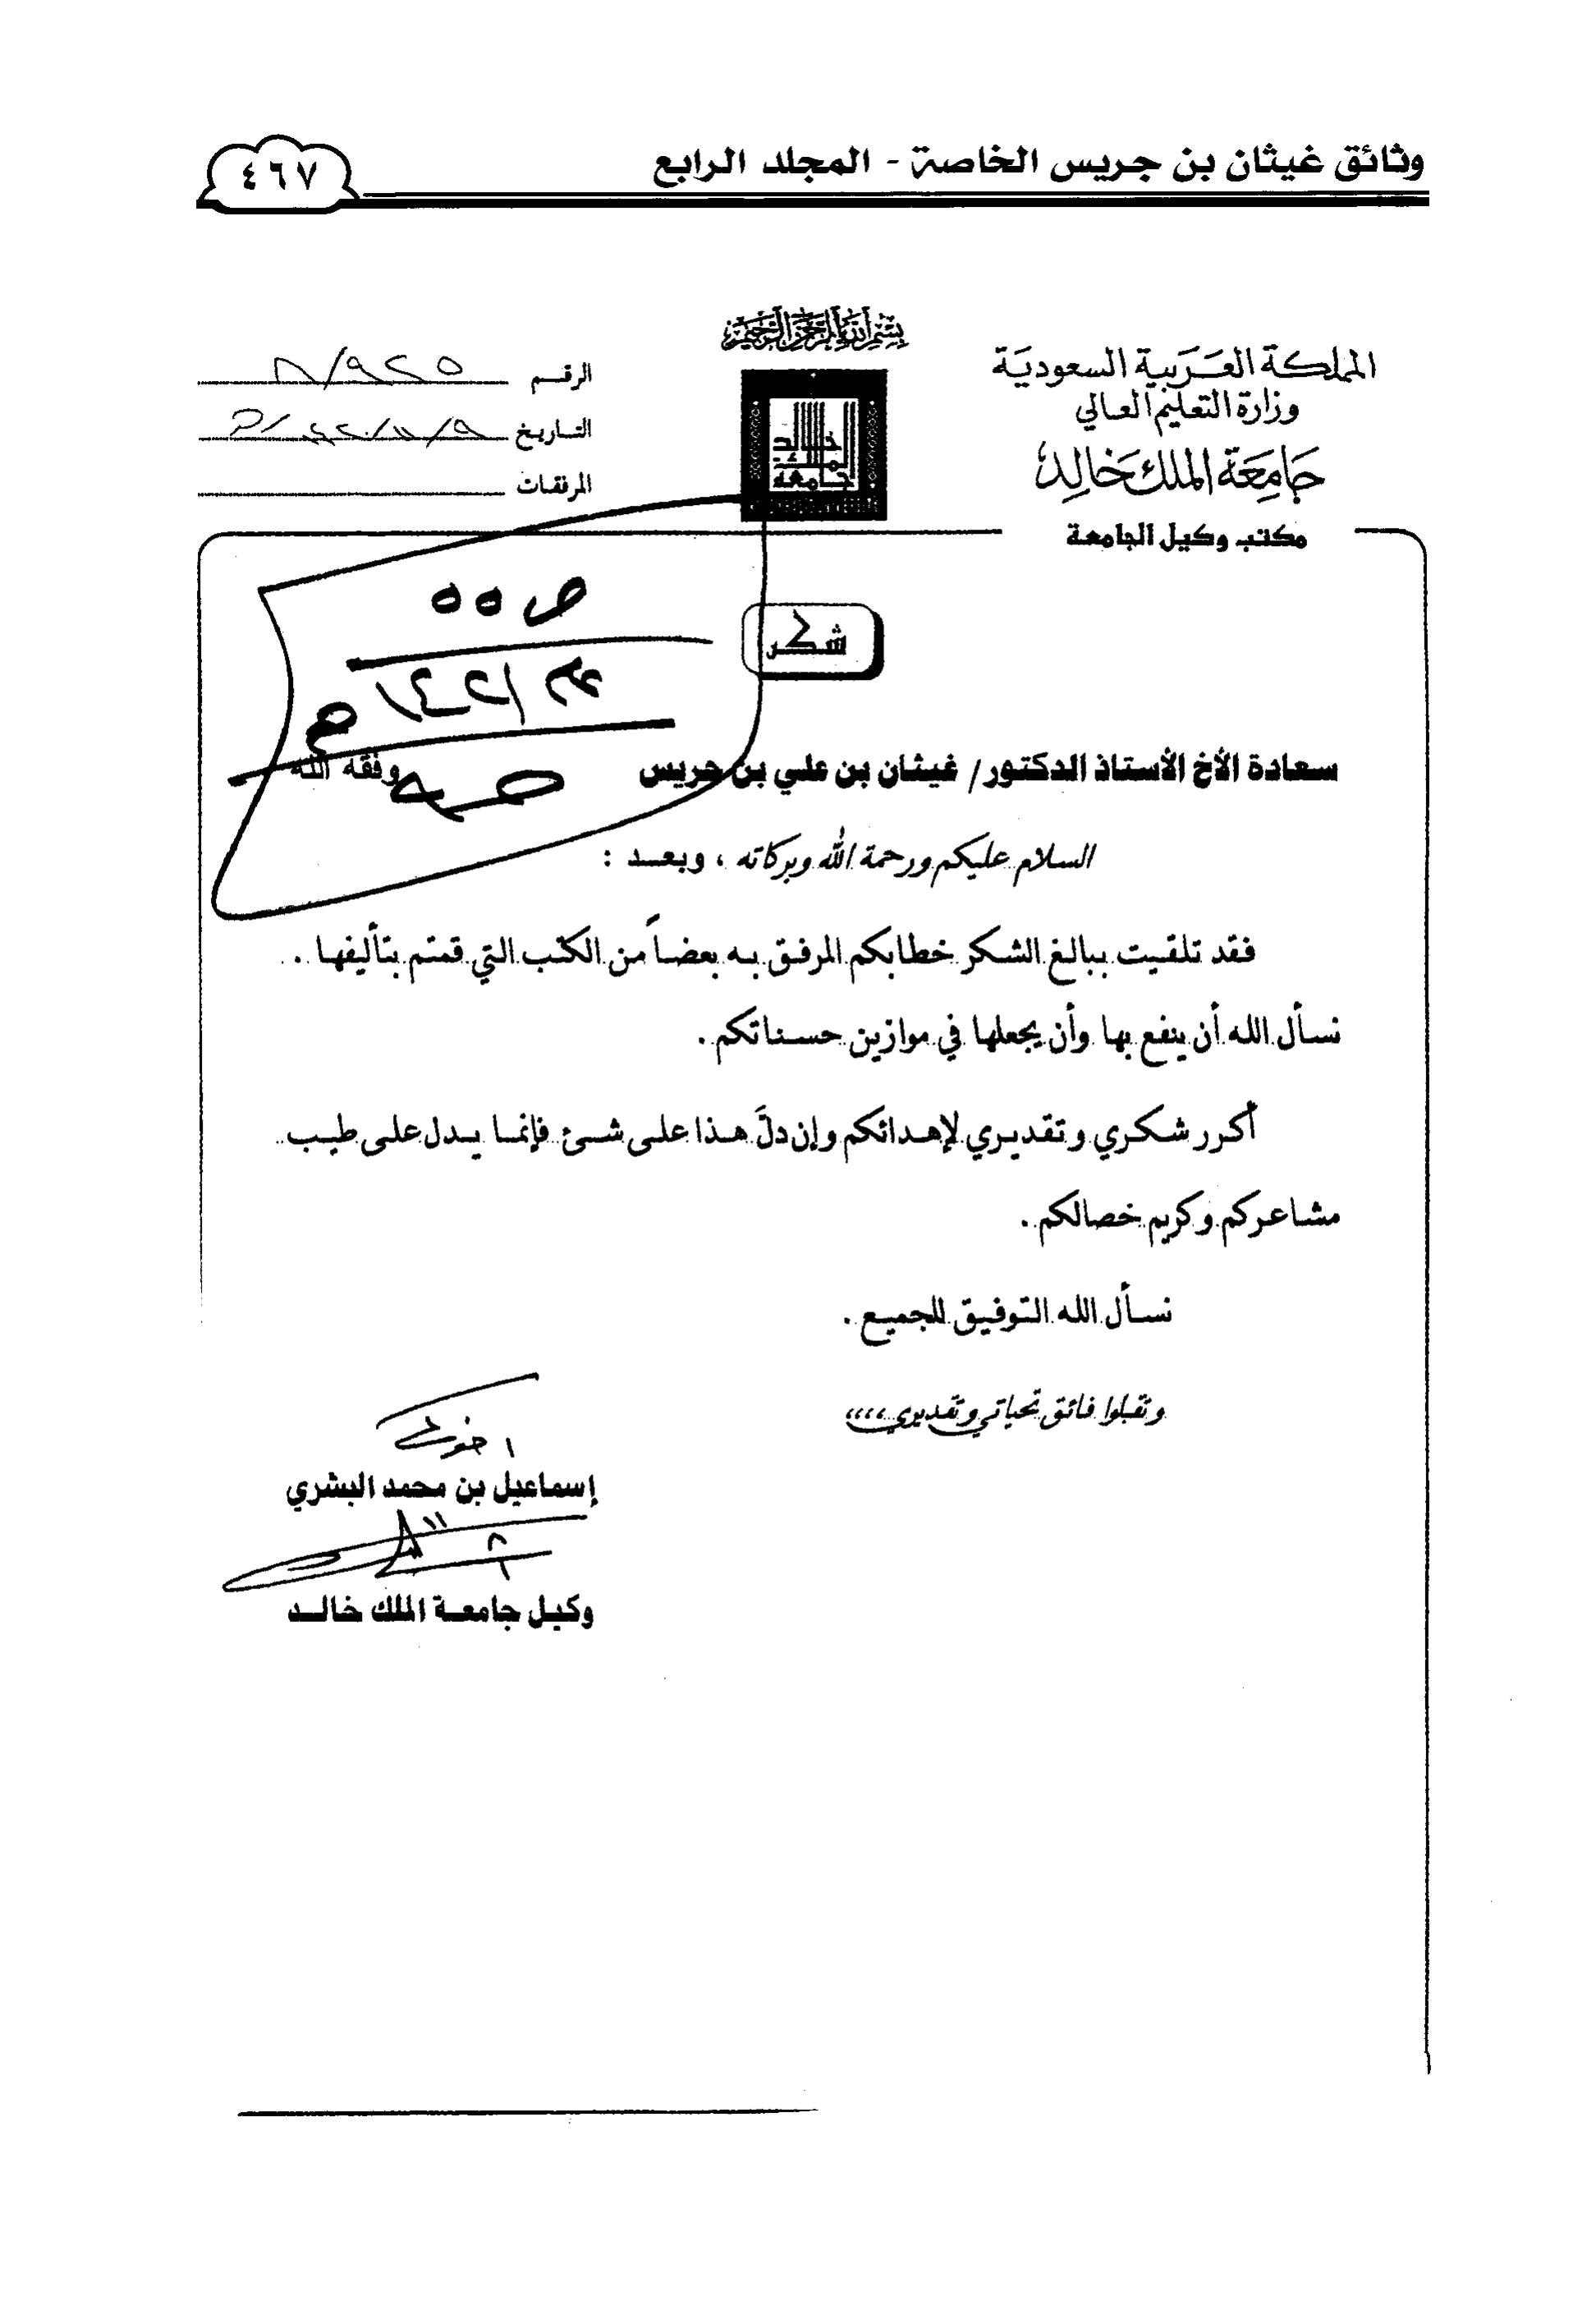 وثائق غيثان بن جريس الخاصة - المجلد الرابع
٤٦٧
بسم الله الرحمن الرحيم
المملكة العربية السعودية
وزارة التعليم العالي
جامعة الملك خالد
مكتب وكيل الجامعة
الرقم
التاريخ
المرفقات
جامعة الملك خالد
ص ٥٥
شكر
سعادة الأخ الأستاذ الدكتور/ غيثان بن علي بن جريس وفقه الله
السلام عليكم ورحمة الله وبركاته ، وبعد :
فقد تلقيت ببالغ الشكر خطابكم المرفق به بعضاً من الكتب التي قمتم بتأليفها .
نسأل الله أن ينفع بها وأن يجعلها في موازين حسناتكم .
أكرر شكري وتقديري لإهدائكم وإن دلَّ هذا على شئ فإنما يدل على طيب
مشاعركم وكريم خصالكم .
نسأل الله التوفيق للجميع .
وتقبلوا فائق تحياتي وتقديري ،،،،
اخوكم
إسماعيل بن محمد البشري
وكيل جامعة الملك خالد